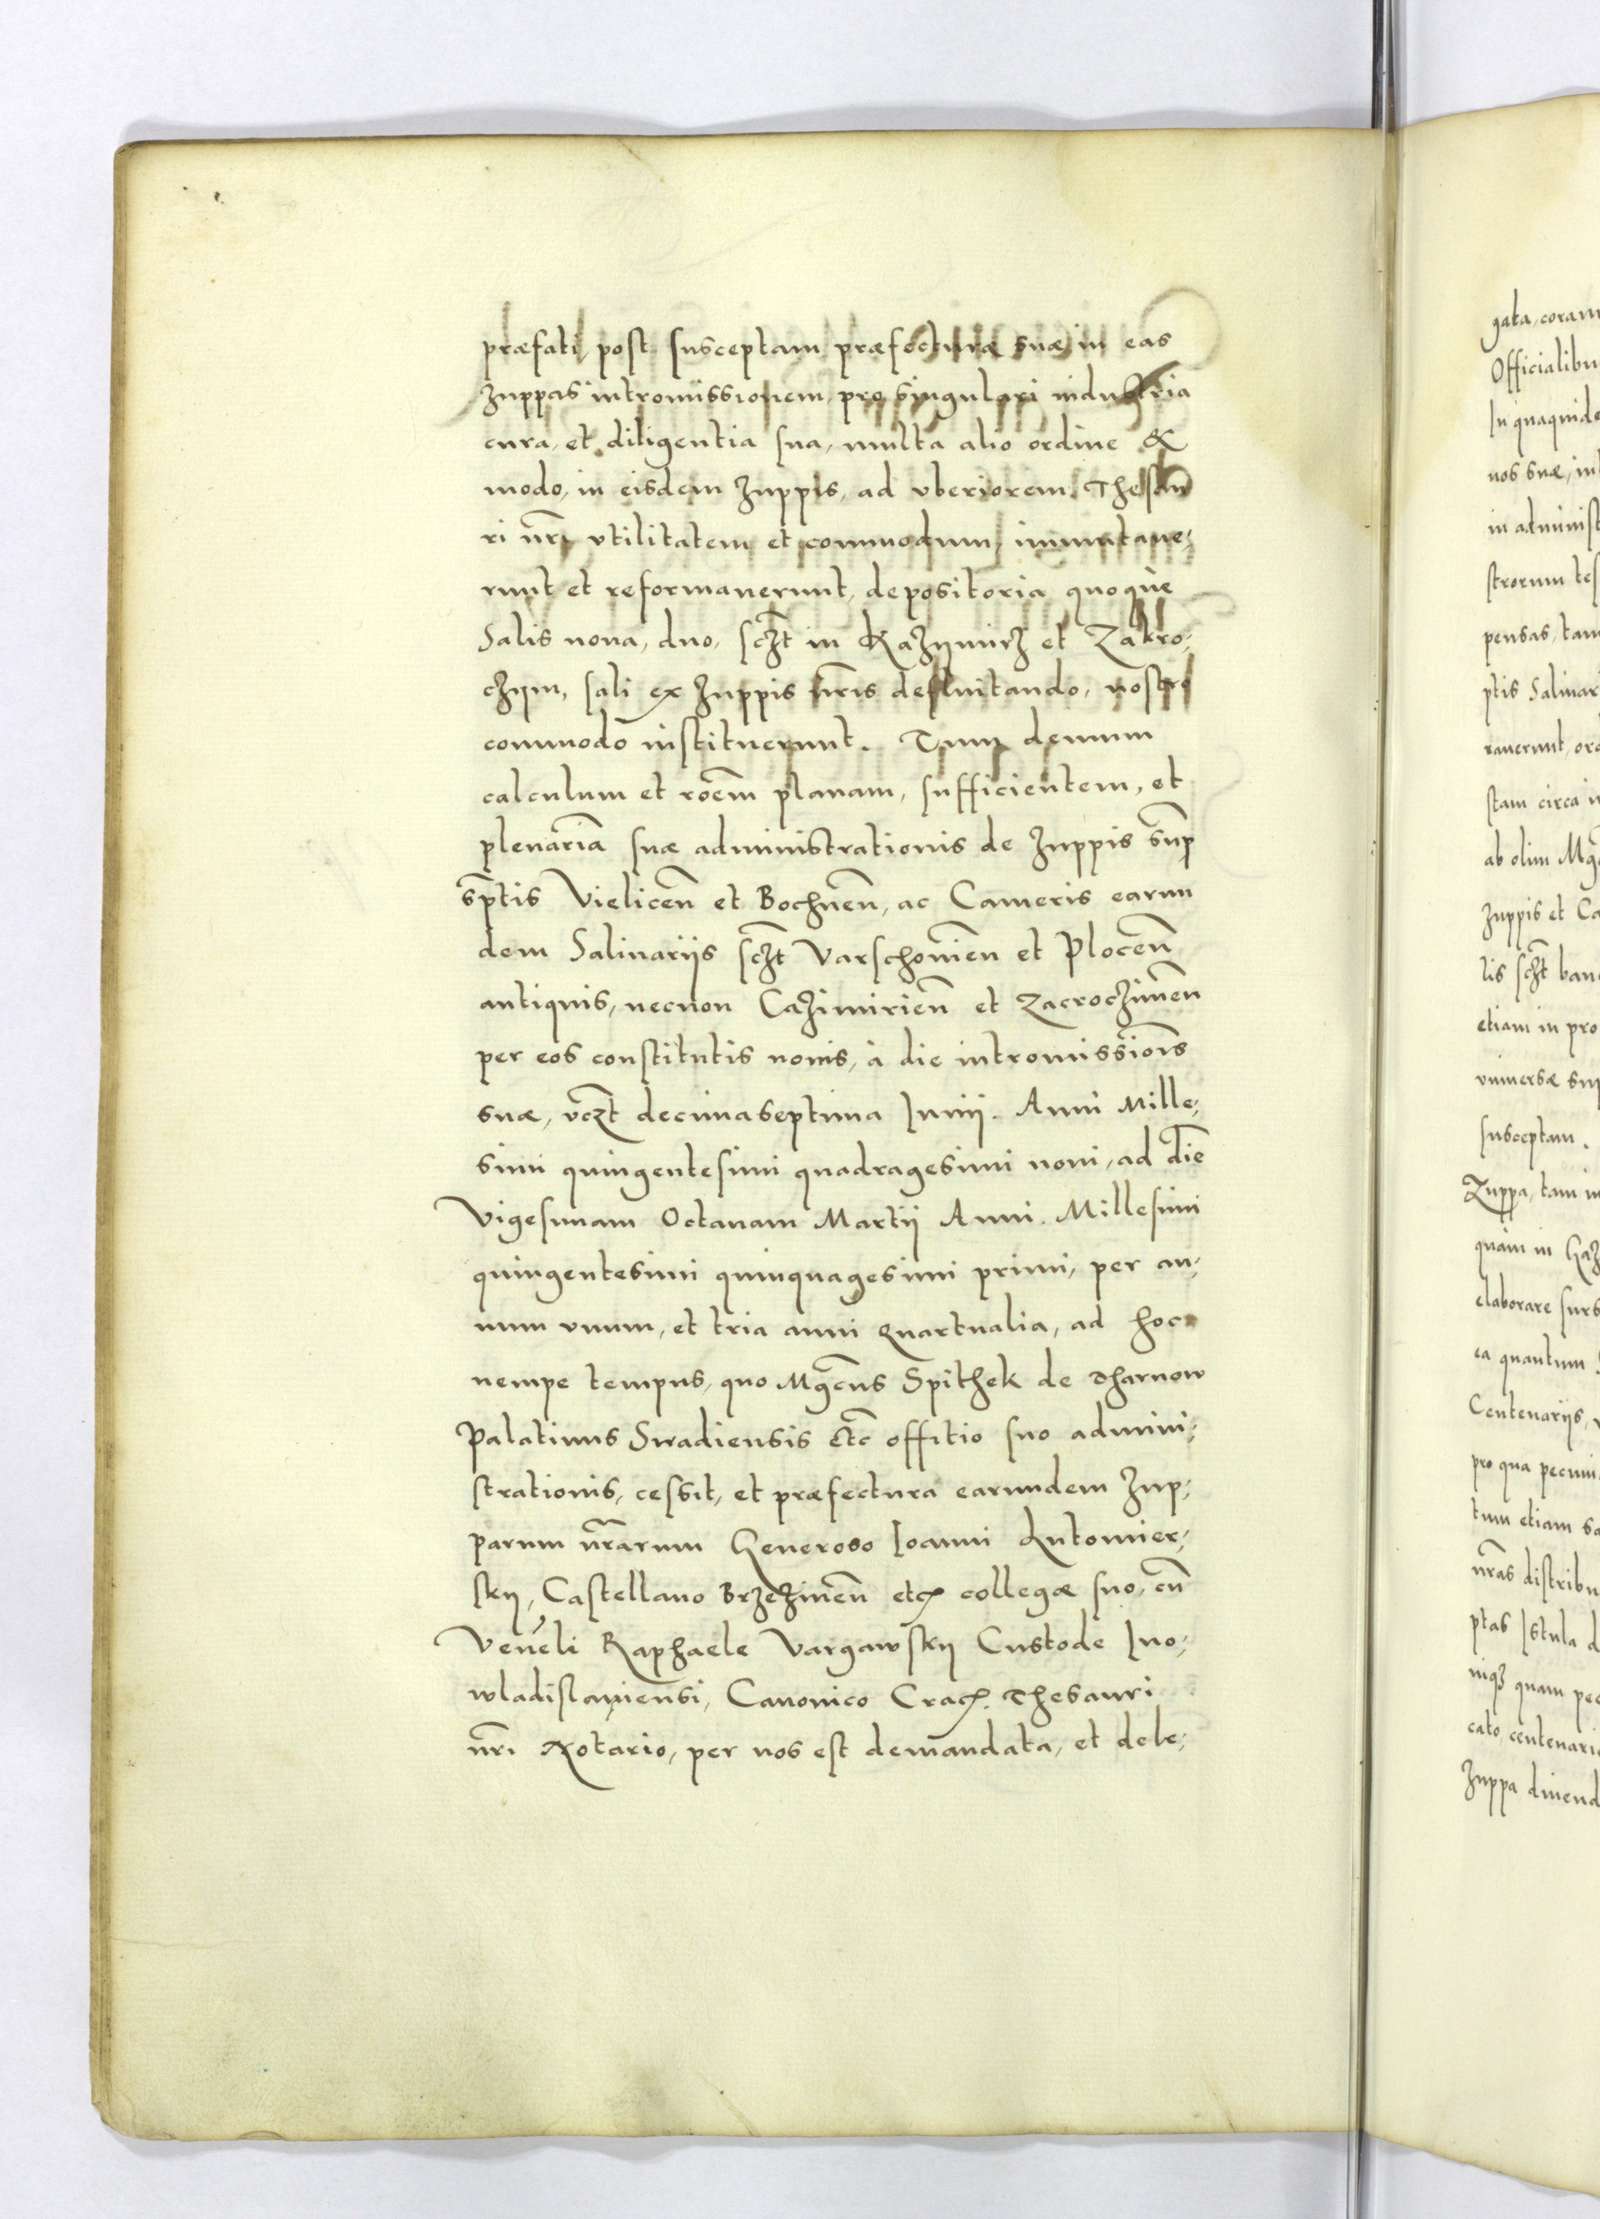 præfati, post susceptam præfecturæ suæ in eas
zuppas intromissionem, pro singulari industria
cura, et diligentia sua, multa alio ordine &
modo, in eisdem zuppis, ad vberiorem Thesau
ri nr̃i vtilitatem et commodum, immutaue,
runt et reformauerunt, depositoria quoque
Salis noua, duo, sczt̃ in Kazijmirz et Zakro,
czijm, sali ex zuppis nr̃is defluitando, nostro
commodo instituerunt. Tum demum
calculum et roẽm planam, sufficientem, et
plenariã suæ administrationis de zuppis sup̃
sp̃tis Vielicen̄ et Bochnen̄, ac Cameris earun
dem Salinarijs sczt̃ Varschouien̄ et Plocen̄
antiquis, necnon Cazimirien̄ et Zacrocimen̄
per eos constitutis nouis, à die intromissiois̃
suæ, vczt̃ decimaseptima Iunij. Anni Mille,
simi quingentesimi quadragesimi noni, ad diē
Vigesimam Octauam Martij Anni. Millesimi
quingentesimi quinquagesimi primi, per an,
num vnum, et tria anni quartualia, ad hoc
nempe tempus, quo Mgc̃us Spithek de Tharnow
Palatinus Siradiensis etc̃ offitio suo admini,
strationis, cessit, et præfectura earundem zup,
parum nr̃arum Generoso Ioanni Lutomier,
skij, Castellano Brzezinen̄ etc. collegæ suo, cū
Venẽli Raphaele Vargawskij Custode Ino,
wladislauiensi, Canonico Crac. Thesauri
nr̃i Notario, per nos est demandata, et dele,
gata, coram
Officialibu
In quaquide
nos suæ, in
in administ
strorum tes
pensas, tam
ptis Salinar
rauerunt, ord
stam circa i
ab olim Mgc̃
zuppis et Ca
lis sczt̃ banc
etiam in pro
vniuersæ sup
susceptam.
Zuppa, tam in
quàm in Caz
elaborare surs
ea quantum
Centenarijs,
pro qua pecuni
tum etiam sa
nr̃as distribu
ptas Istula d
niq3 quam pec
cato, centenari
zuppa diuend